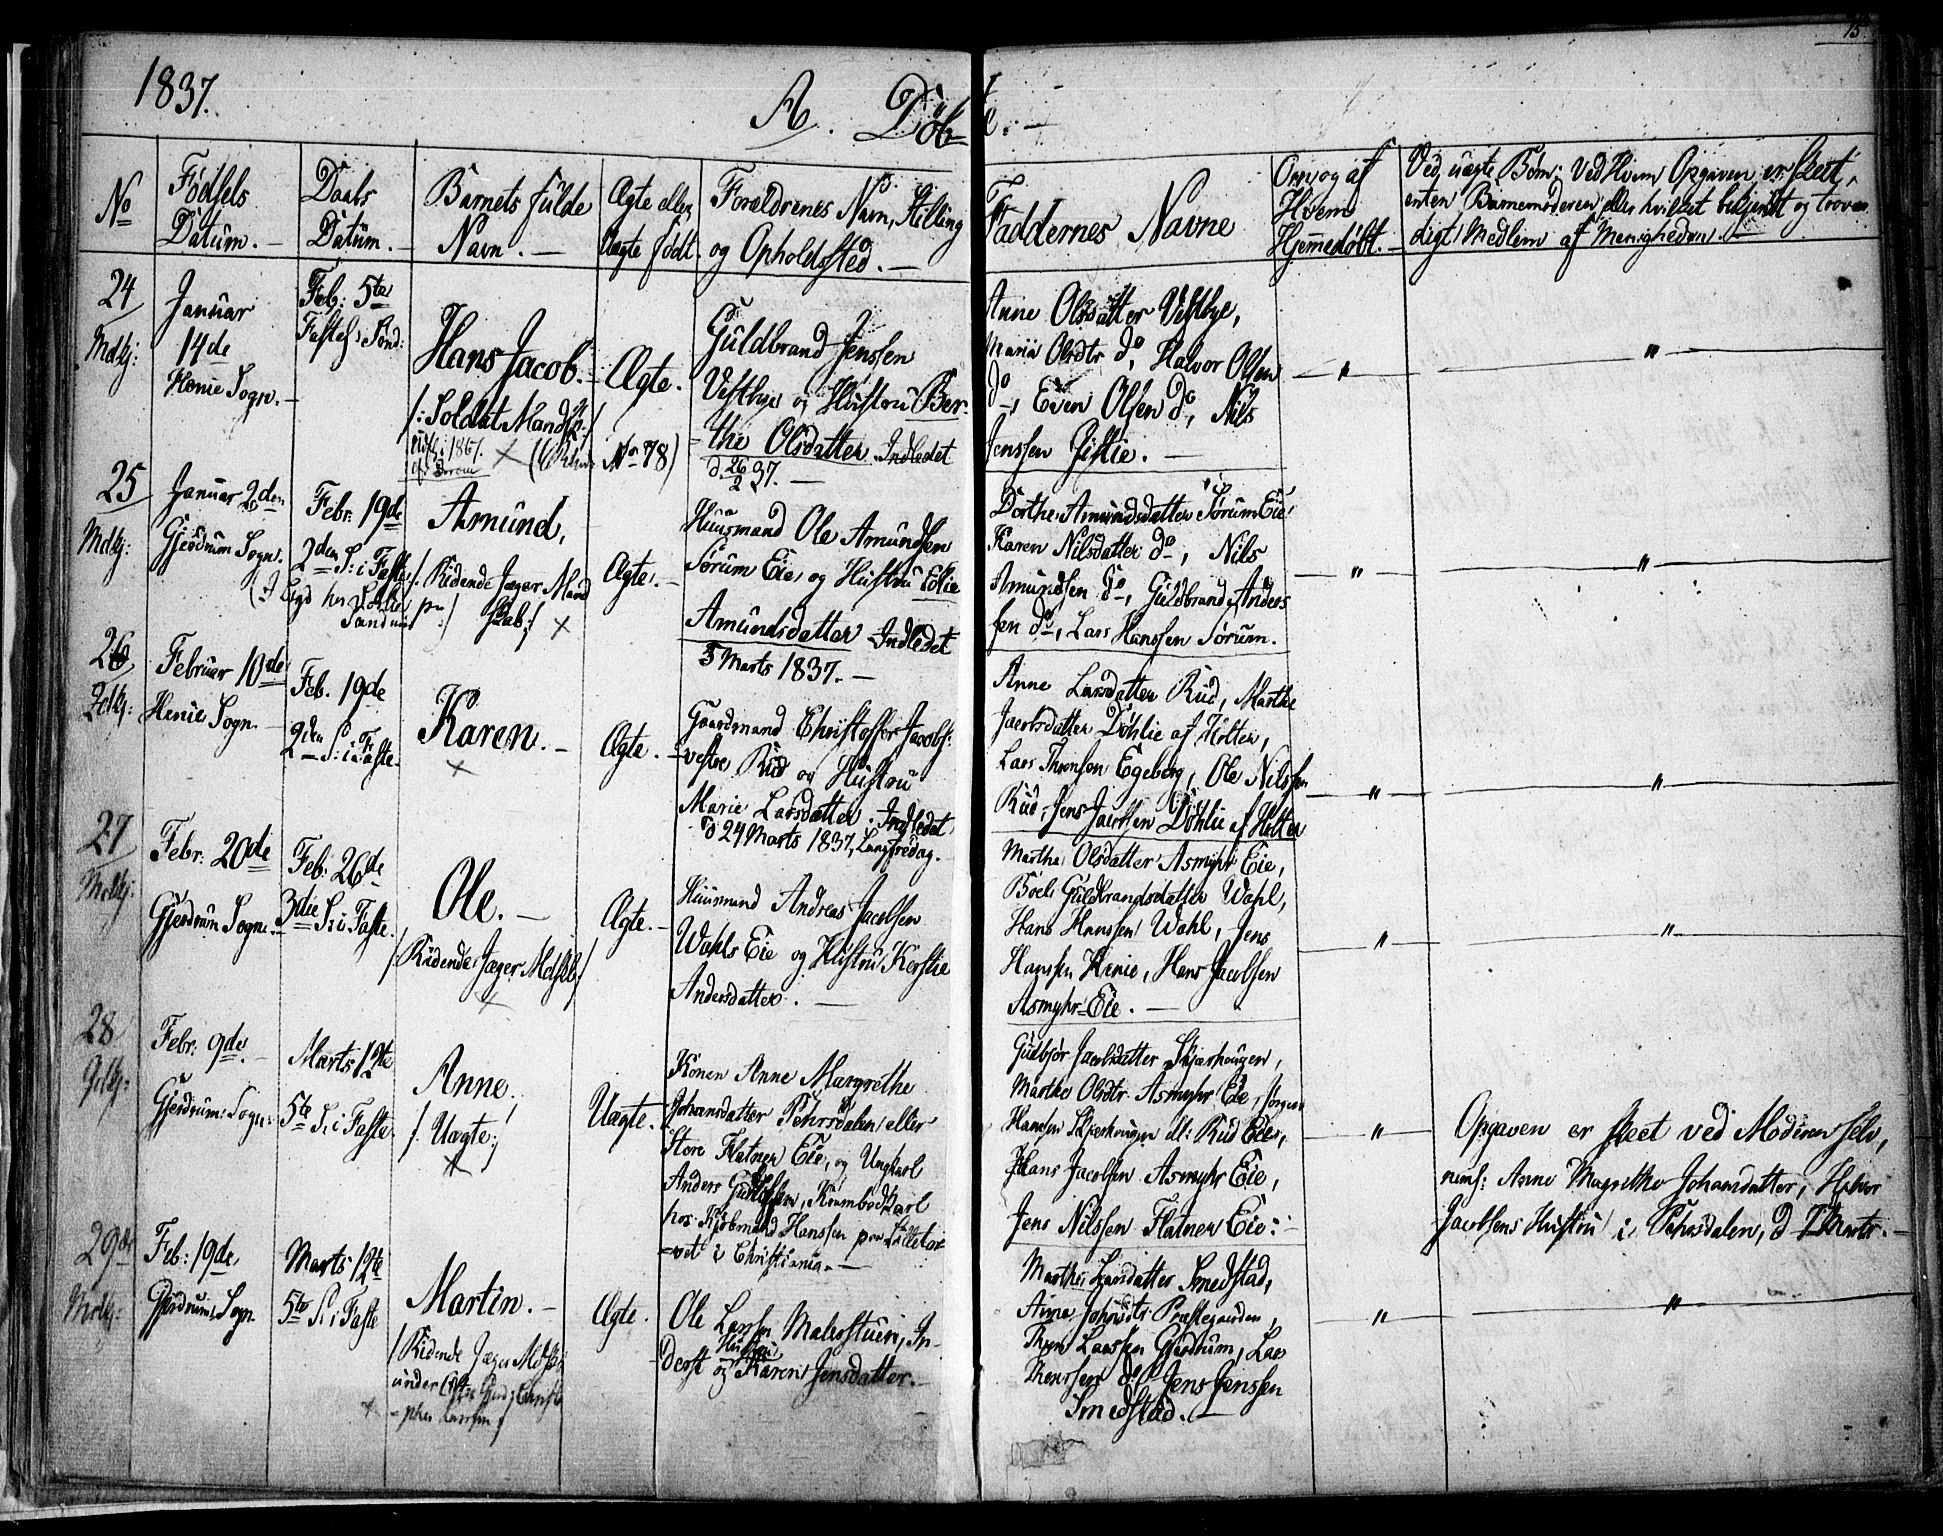 15.
1837.
A. Döbte.
No
Födsels
Datum.
Daabs
Datum.
Barnets fulde
Navn.
Ægte eller
Uægte født.
Forældrenes Navn, Stilling
og Opholdssted.
Faddernes Navne
Om og af
Hvem
Hjemmedöbt.
Ved uægte Børn: Ved Hvem Opgaven er skeet,
enten Barnemoderen eller hvilket bekjendt og trovær
digt Medlem af Menigheden.
24
Mdkj:
Januar
14de
Henie Sogn.
Feb: 5te
Fastel: Sønd:
Hans Jacob.
/: Soldat Mandsk
Ægte.
No 78)
Guldbrand Jenssen
Vestbye og Hustru Ber-
the Olsdatter. Indledet
d 26/2 37.
Anne Olsdatter Vestbye,
Maria Olsdtr do, Halvor Olsen
do, Even Olsen do, Nils
Jenssen Gistie.
"
"
25
Mdkj:
Januar 2den
Gjerdrum Sogn.
Febr: 19de
2den S: i Faste
Amund,
/: Ridende Jæger Mand
skab:/
Ægte.
Huusmand Ole Amundsen
Sørum Eie og Hustru Eslie
Amundsdatter Indledet
5 Marts 1837.
Dorthe Amundsdatter Sørum Eie,
Karen Nilsdatter do, Nils
Amundsen do, Guldbrand Anders
sen do, Lars Hanssen Sørum.
"
"
26
Qdkj:
Februar 10de
Henie Sogn.
Feb. 19de
2den S: i Faste.
Karen.
Ægte.
Gaardmand Christoffer Jacobs:
vestre Rud og Hustru
Marie Larsdatter. Indledet
d 24 Marts 1837, Langfredag.
Anne Larsdatter Rud, Marthe
Jacobsdatter Döhlie af Holter,
Lars Thorssen Egeberg, Ole Nilssen
Rud, Jens Jacobsen Döhlie af Holter
"
"
27
Mdkj:
Febr: 20de
Gjerdrum Sogn.
Feb: 26de
3die S: i Faste.
Ole.
/: Ridende Jæger Mdskb:/
Ægte.
Huusmand Andreas Jacobsen
Wahls Eie og Hustru Kerstie
Andersdatter.
Marthe Olsdatter Asmyhr Eie,
Boel Guldbrandsdatter Wahl,
Hans Hanssen Wahl, Jens
Hanssen Henie, Hans Jacobsen
Asmyhr-Eie.
"
"
28
Qdkj:
Febr: 9de
Gjerdrum Sogn:
Marts 12te
5te S: i Faste.
Anne.
/: Uægte:/
Uægte.
Konen Anne Margrethe
Johansdatter Fehrsdalen eller
Store Flatner Eie, og Ungkarl
Anders Gulbrandsen, Krambodkarl
hos Kjöbmand Hanssen paa Lilletor
vet i Christiania.
Gudbjør Jacobsdatter Skjærhougen,
Marthe Olsdtr Asmyhr Eie, Jörgen
Hanssen Skjærhougen ell: Rud Eie,
Hans Jacobsen Asmyhr Eie,
Jens Nilssen Flatner Eie:
"
Opgaven er skeet ved Moderen selv,
neml: Anne Magrethe Johansdatter, Halvor
Jacobsens Hustru i Fehrsdalen, d 7 Marts.
29de
Mdkj:
Feb: 19de
Gjerdrum Sogn.
Marts 12te
5te S: i Faste
Martin.
/: Ridende Jæger Mdskb
under
Ægte.
Ole Larssen Malerstuen, In-
derst og Hustru Karen Jensdatter.
Marthe Larsdatter Smedstad,
Anne Johansdtr Præstegaarden,
Thor Larssen Gjerdrum, Lars
Thorssen do, Jens Jenssen
Smedstad.
"
"